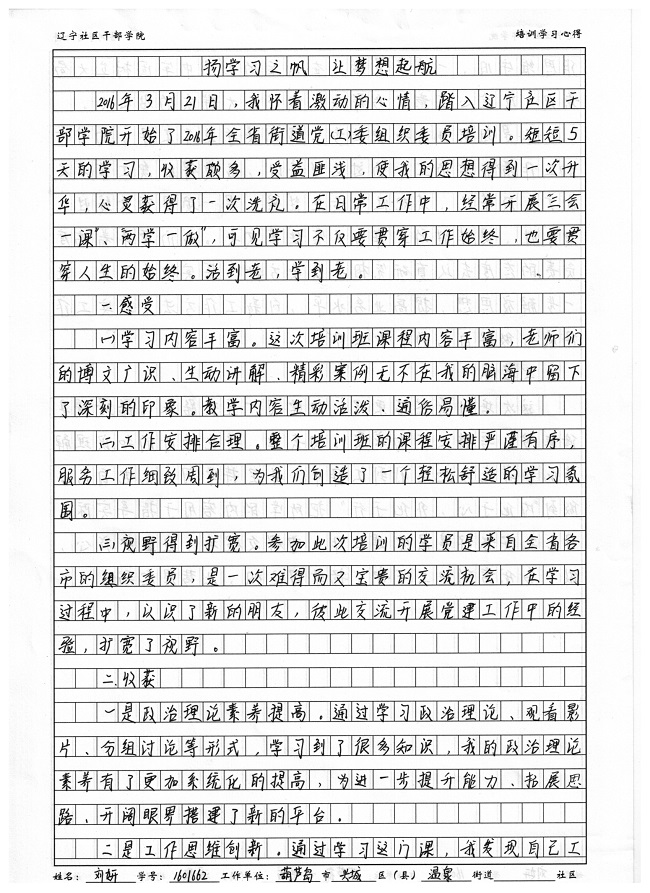 辽宁社区干部学院 培训学习心得
扬学习之帆 让梦想起航
2016年3月21日，我怀着激动的心情，踏入辽宁社区干
部学院开始了2016年全省街道党(工)委组织委员培训。短短5
天的学习，收获颇多，受益匪浅，使我的思想得到一次升
华，心灵获得了一次洗礼。在日常工作中，经常开展“三会
一课”、“两学一做”，可见学习不仅要贯穿工作始终，也要贯
穿人生的始终。活到老，学到老。
一.感受
(一)学习内容丰富。这次培训班课程内容丰富，老师们
的博文广识、生动讲解、精彩案例无不在我的脑海中留下
了深刻的印象。教学内容生动活泼、通俗易懂.
(二)工作安排合理。整个培训班的课程安排严谨有序，
服务工作细致周到，为我们创造了一个轻松舒适的学习氛
围。
(三)视野得到扩宽。参加此次培训的学员是来自全省各
市的组织委员，是一次难得而又宝贵的交流机会，在学习
过程中，认识了新的朋友，彼此交流开展党建工作中的经
验，扩宽了视野。
二.收获
一是政治理论素养提高。通过学习政治理论、观看影
片、分组讨论等形式，学习到了很多知识，我的政治理论
素养有了更加系统化的提高，为进一步提升能力、拓展思
路、开阔眼界搭建了新的平台.
二是工作思维创新。通过学习这门课，我发现自己工
姓名：刘妍 学号：1601662 工作单位：葫芦岛 市 兴城 区（县） 温泉 街道 社区